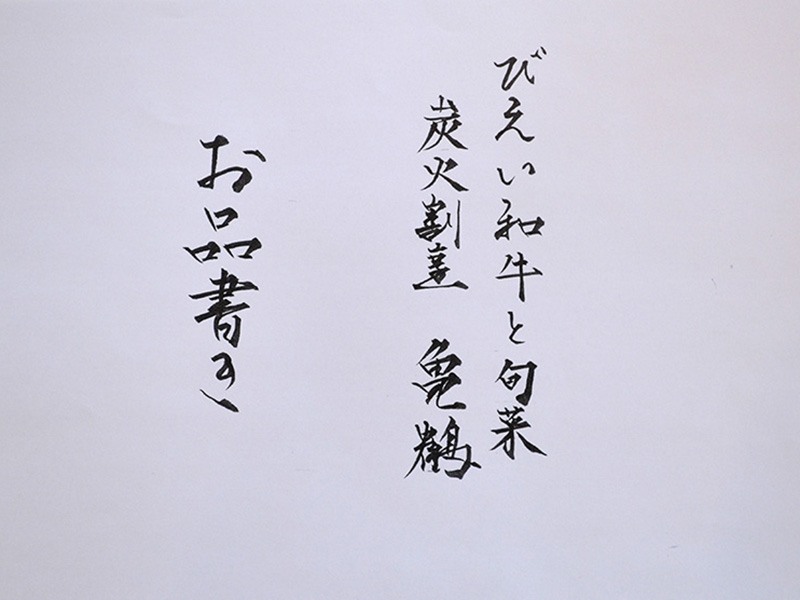 びえい和牛と旬菜
炭火割烹 亀鶴
お品書き